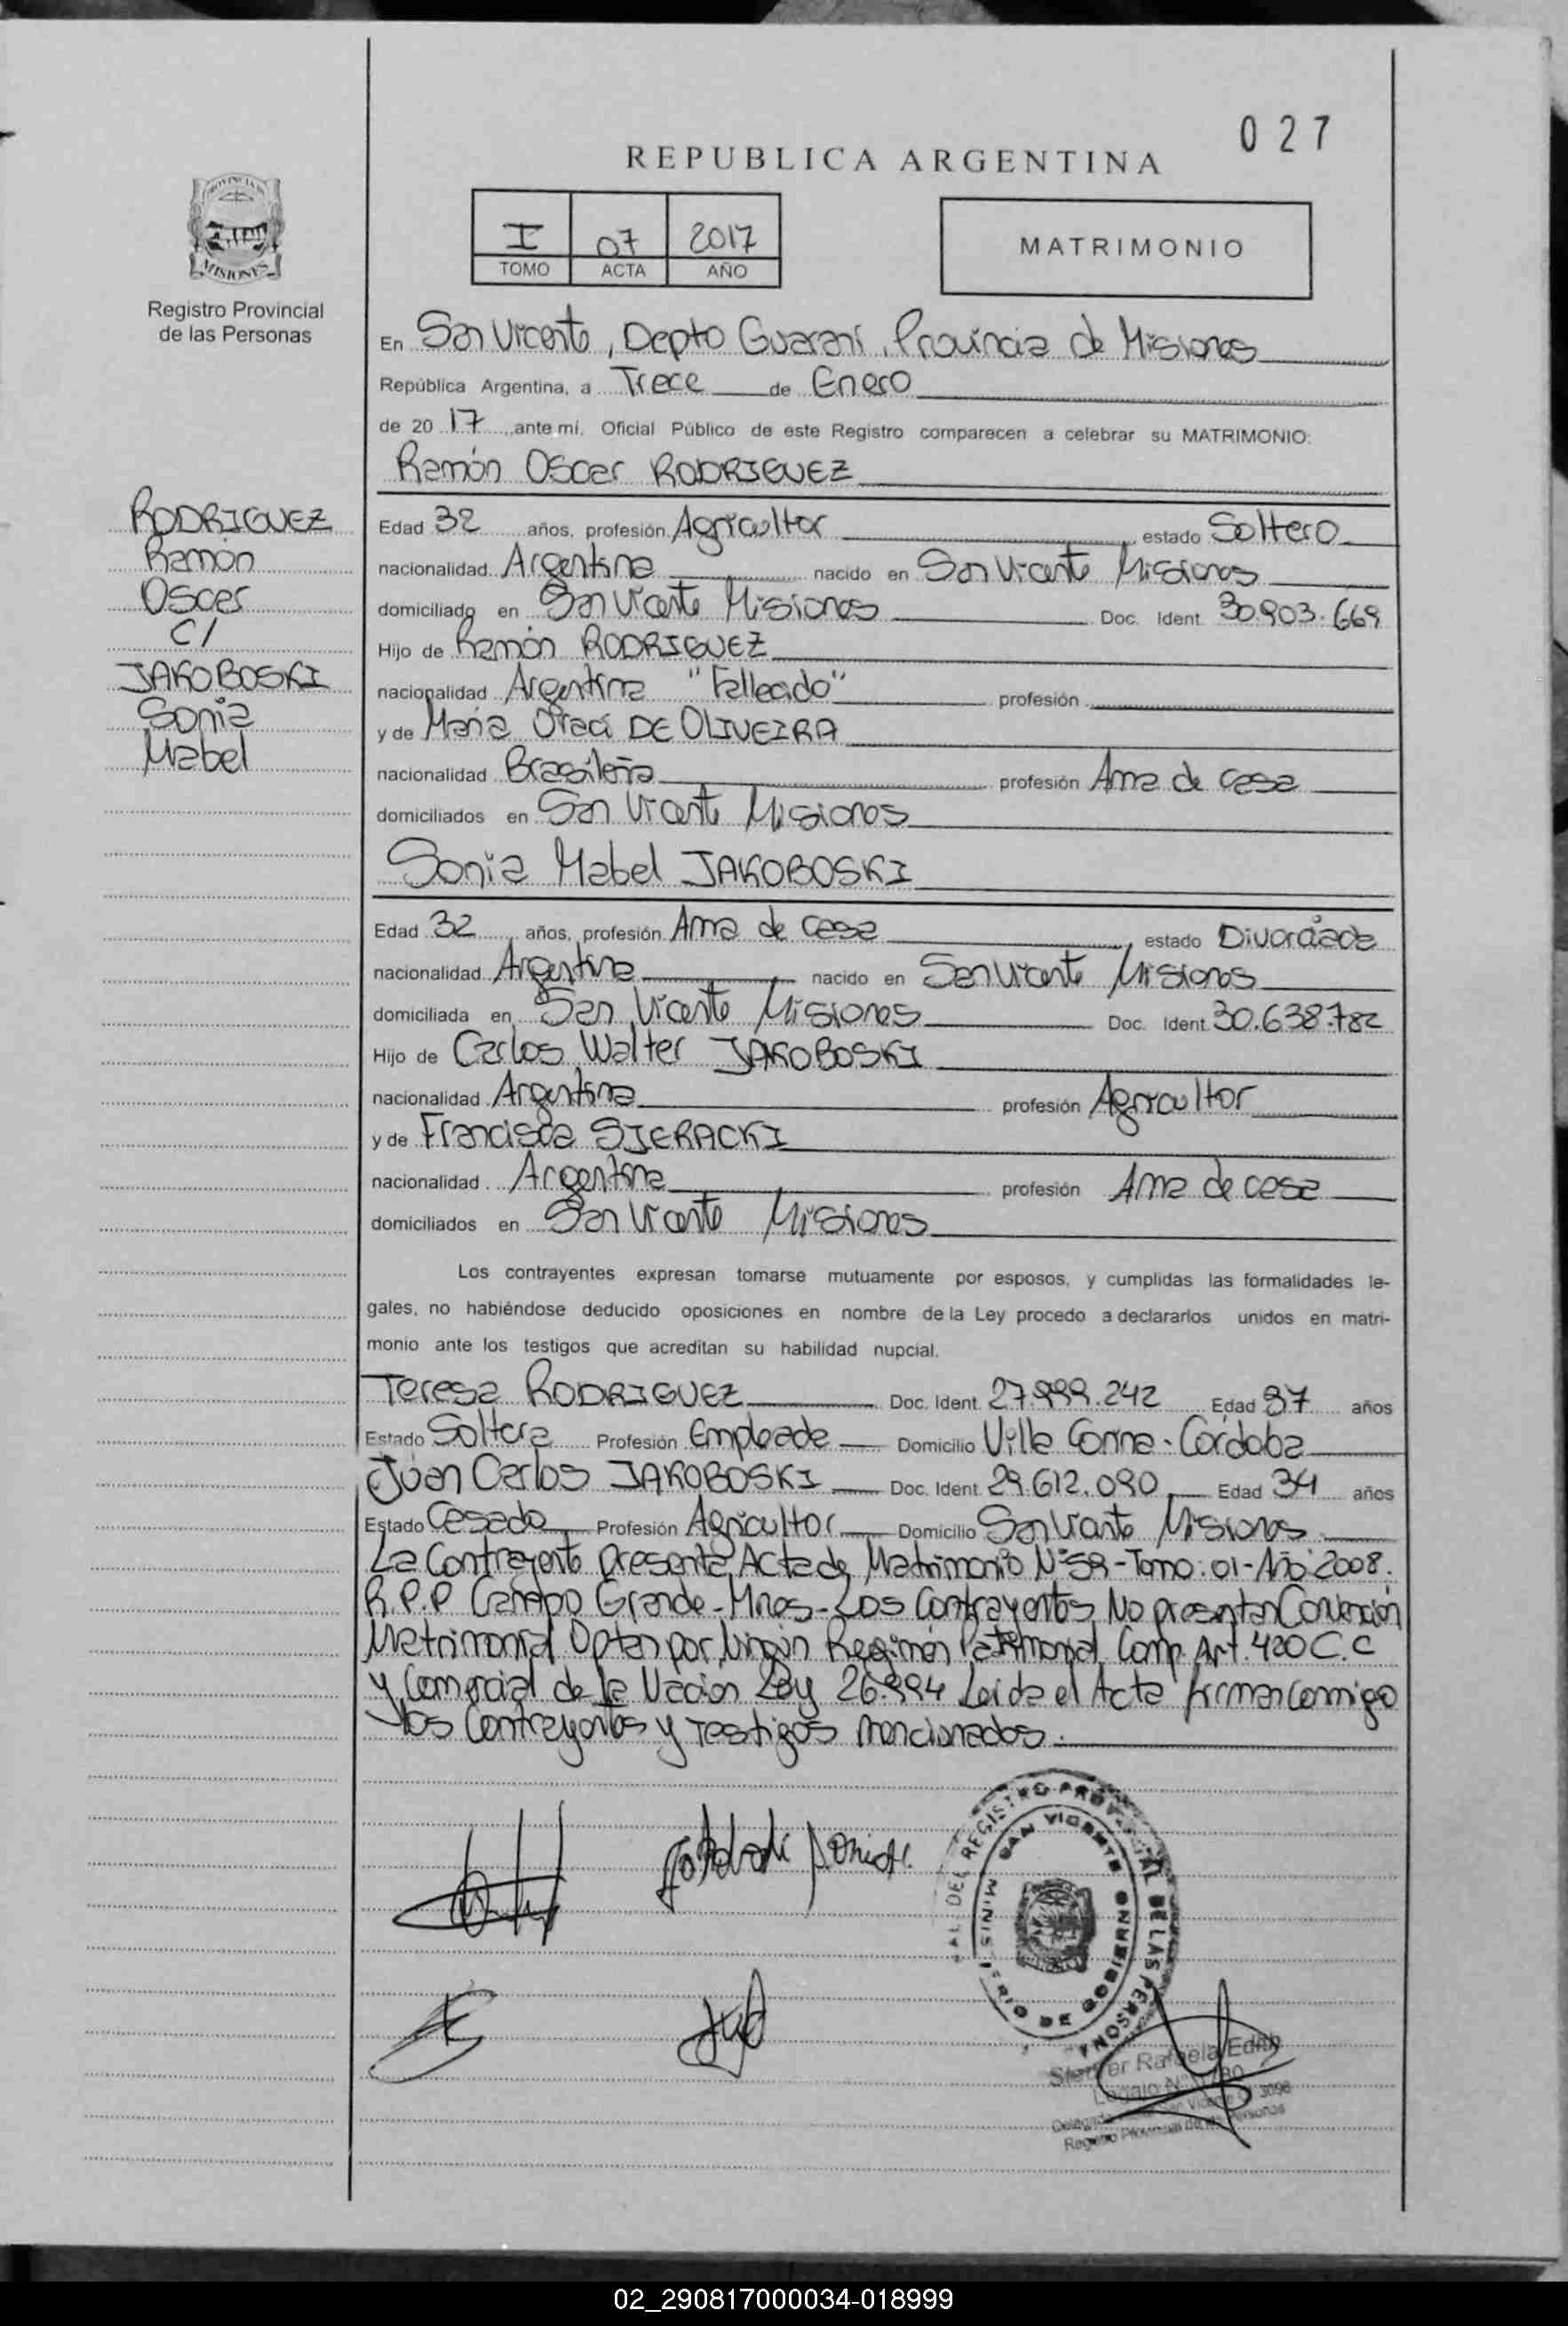 027
REPUBLICA ARGENTINA
PROVINCIA DE
MISIONES
Registro Provincial
de las Personas
I 07 2017
TOMO ACTA AÑO
MATRIMONIO
En San Vicente, Depto Guaraní, Provincia de Misiones
República Argentina, a Trece de Enero
de 20 17 ante mí, Oficial Público de este Registro comparecen a celebrar su MATRIMONIO:
Ramón Oscar RODRIGUEZ
RODRIGUEZ
Ramón
Oscar
C/
JAKOBOSKI
Sonia
Mabel
Edad 32 años, profesión Agricultor estado Soltero
nacionalidad Argentina nacido en San Vicente Misiones
domiciliado en San Vicente Misiones Doc. Ident. 30.903.669
Hijo de Ramón RODRIGUEZ
nacionalidad Argentina "Fallecido" profesión
y de María Oraci DE OLIVEIRA
nacionalidad Brasileña profesión Ama de casa
domiciliados en San Vicente Misiones
Sonia Mabel JAKOBOSKI
Edad 32 años, profesión Ama de casa estado Divorciada
nacionalidad Argentina nacido en San Vicente Misiones
domiciliada en San Vicente Misiones Doc. Ident. 30.638.782
Hijo de Carlos Walter JAKOBOSKI
nacionalidad Argentina profesión Agricultor
y de Francisca SIERACKI
nacionalidad Argentina profesión Ama de casa
domiciliados en San Vicente Misiones
Los contrayentes expresan tomarse mutuamente por esposos, y cumplidas las formalidades le-
gales, no habiéndose deducido oposiciones en nombre de la Ley procedo a declararlos unidos en matri-
monio ante los testigos que acreditan su habilidad nupcial.
Teresa RODRIGUEZ Doc. Ident. 27.999.242 Edad 37 años
Estado Soltera Profesión Empleada Domicilio Villa Corina - Córdoba
Juan Carlos JAKOBOSKI Doc. Ident. 29.612.090 Edad 34 años
Estado Casado Profesión Agricultor Domicilio San Vicente Misiones
La Contrayente presenta Acta de Matrimonio Nº 59 - Tomo: 01 - Año 2008.
R.P.P Campo Grande - Mnes - Los Contrayentes No presentan Convención
Matrimonial Optan por Ningún Regimén Patrimonial Comp. Art. 420 C.C
y Comercial de la Nacion Ley 26.994 Leida el Acta firman Conmigo
los Contrayentes y Testigos mencionados.
DEL REGISTRO PROVINCIAL DE LAS PERSONAS
MINISTERIO DE GOBIERNO
SAN VICENTE
Rafaela Edith
3098
Registro Provincial de las Personas
02_290817000034-018999